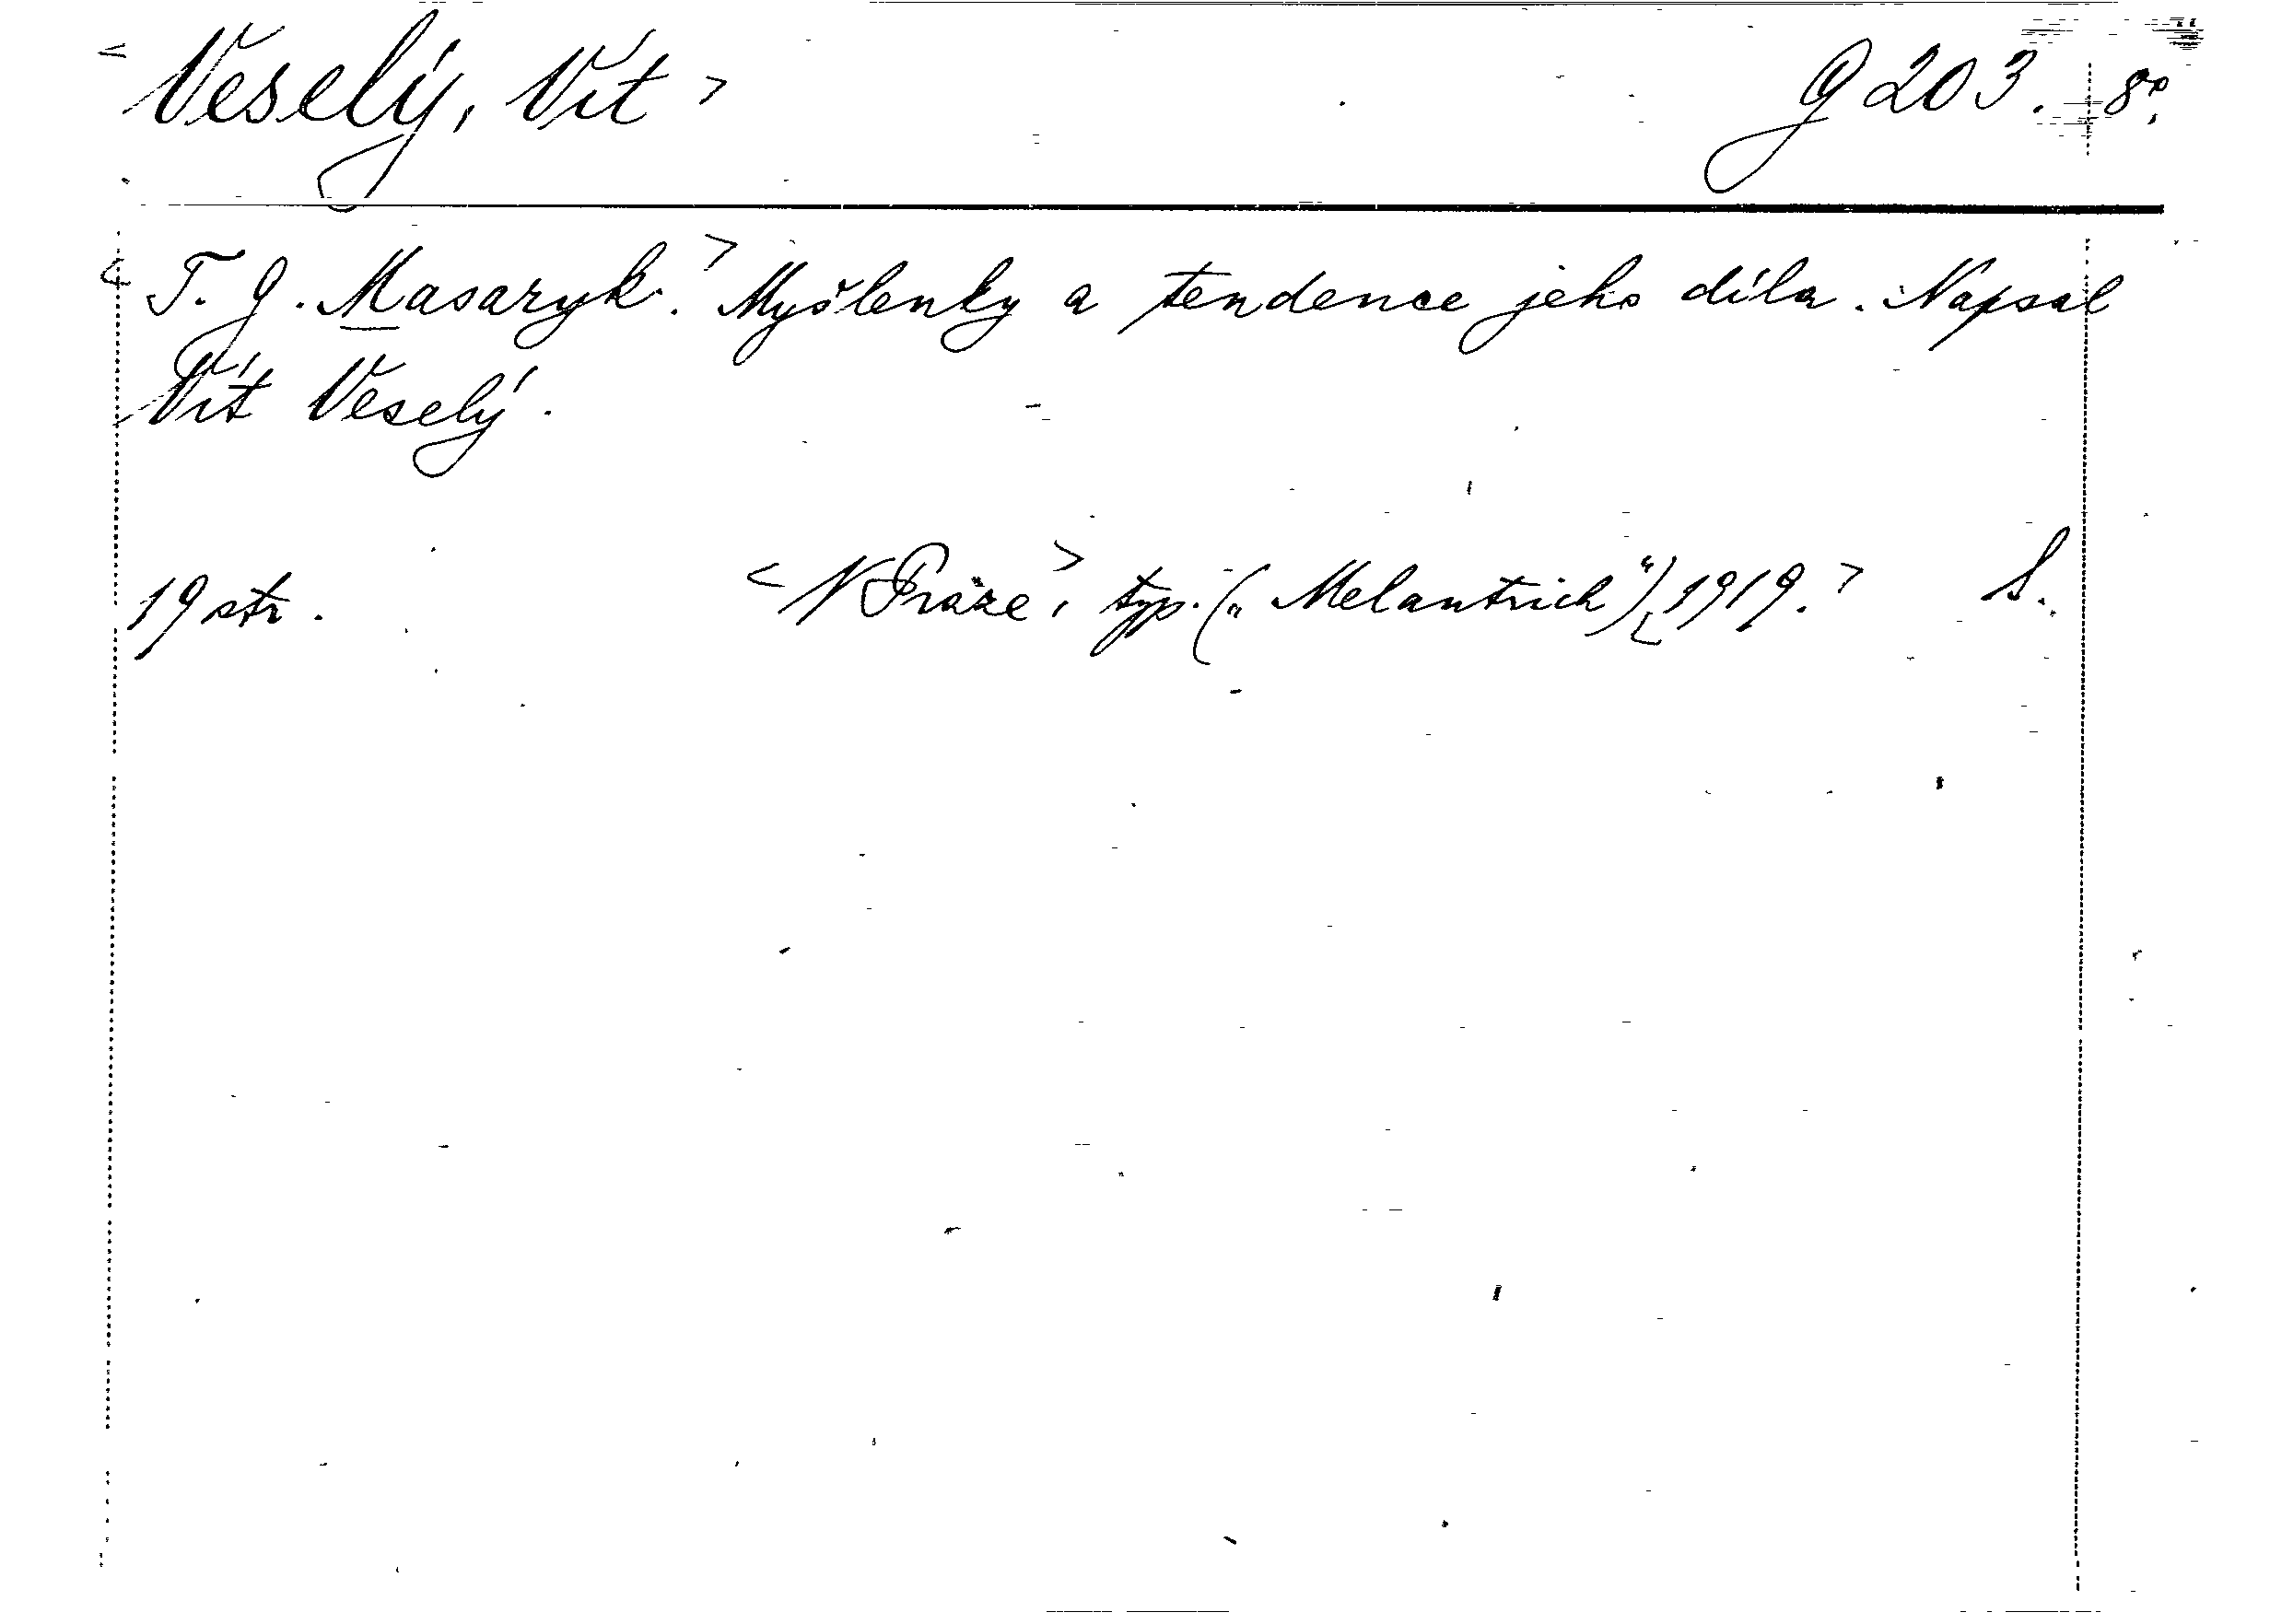 < Veselý, Vít > G 203. 8°.
< T. G. Masaryk. > Myšlenky a tendence jeho díla. Napsal
Vít Veselý.
19 str. < V Praze >, typ. („Melantrich“) 1919. > S.